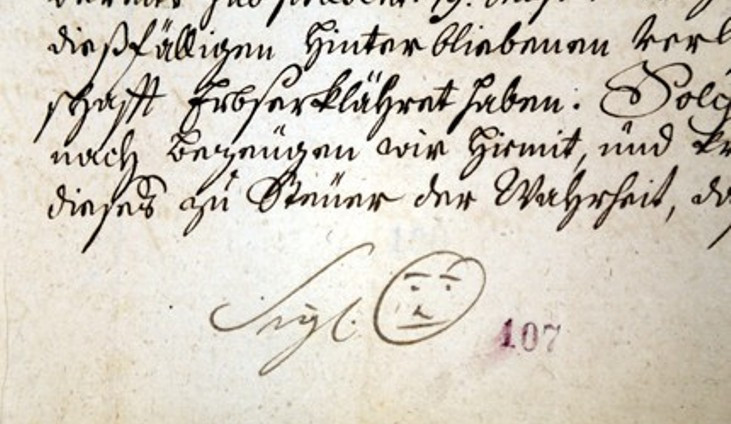 dießfälligen Hinterbliebenen
schafft Erbserklähret haben: Solch
nach bezeugen wir hiemit, und
dieses zu Steuer der Wahrheit, da
Sigl.
107